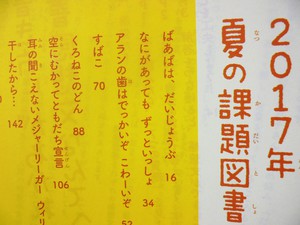 2017年
夏の課題図書
なつ か だい と しょ
ばあばは、だいじょうぶ 16
なにがあっても ずっといっしょ 34
アランの歯はでっかいぞ こわーいぞ 52
すばこ 70
くろねこのどん 88
空にむかってともだち宣言 106
耳の聞こえないメジャーリーガー ウィリ
干したから… 142